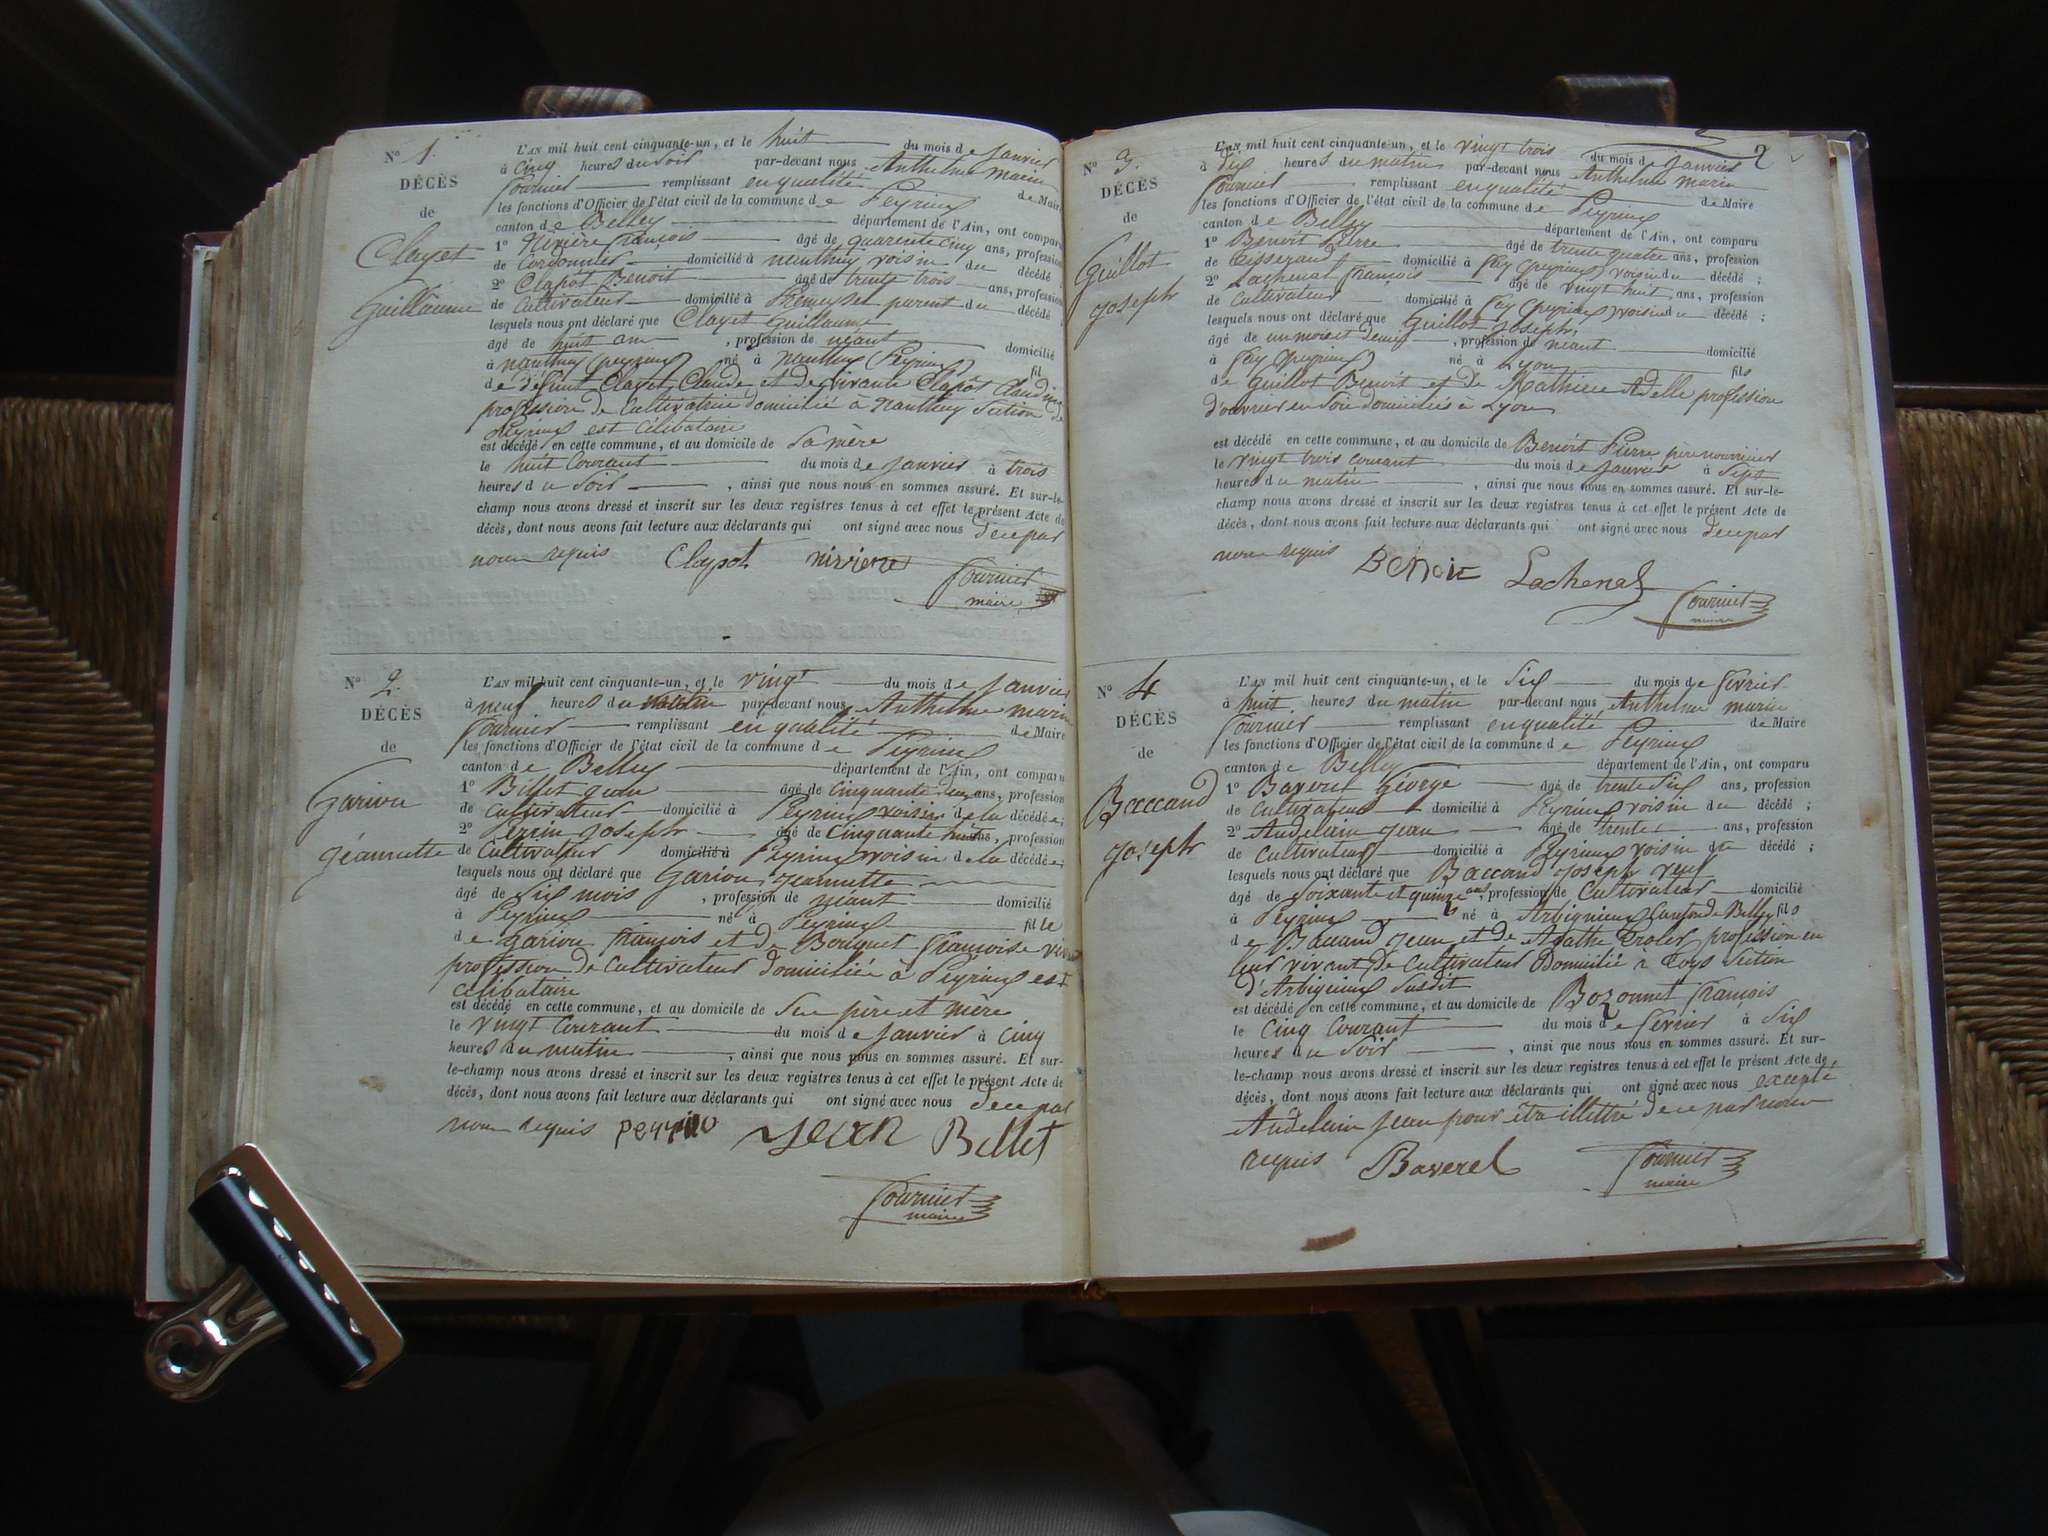 N° 1.
DÉCÈS
de
Clayet
Guillaume
L'AN mil huit cent cinquante-un, et le huit du mois de Janvier
à cinq heures du soir par-devant nous Anthelme Marin
Fournier remplissant en qualité de Maire
les fonctions d'Officier de l'état civil de la commune de Peyrieux
canton de Belley département de l'Ain, ont comparu
1° Rivière François âgé de quarente cinq ans, profession
de Cordonnier domicilié à nanthuy voisin du décédé ;
2° Clapot Benoit âgé de trente trois ans, profession
de Cultivateur domicilié à parent du décédé ;
lesquels nous ont déclaré que Clayet Guillaume
âgé de huit ans , profession de néant domicilié
à nanthuy (peyrieux) né à Nanthuy (Peyrieux) fil
de défunt Clayet Claude et de vivante Clapot Claudine
profession de Cultivatrice domicilié à Nanthuy Section de
Peyrieux est célibataire
est décédé en cette commune, et au domicile de Sa mère
le huit Courant du mois de Janvier à trois
heures du Soir , ainsi que nous nous en sommes assuré. Et sur-le-
champ nous avons dressé et inscrit sur les deux registres tenus à cet effet le présent Acte de
décès, dont nous avons fait lecture aux déclarants qui ont signé avec nous de ce par
nous requis Clapot rivière
Fournier
maire
N° 2.
DÉCÈS
de
Gariou
Jéannette
L'AN mil huit cent cinquante-un, et le vingt du mois de Janvier
à neuf heures du matin par-devant nous Anthelme Marin
Fournier remplissant en qualité de Maire
les fonctions d'Officier de l'état civil de la commune de Peyrieux
canton de Belley département de l'Ain, ont comparu
1° Billet Jean âgé de Cinquante deux ans, profession
de cultivateur domicilié à Peyrieux voisin de la décédée ;
2° Perrin Joseph âgé de Cinquante huit ans, profession
de Cultivateur domicilié à Peyrieux voisin de la décédée ;
lesquels nous ont déclaré que Gariou Jeannette
âgé de Six mois , profession de néant domicilié
à Peyrieux né à Peyrieux fille
de Gariou françois et de Bouquet Françoise
profession de Cultivateur domiciliée à Peyrieux est
célibataire
est décédé en cette commune, et au domicile de Ses père et mère
le vingt Courant du mois de Janvier à Cinq
heures du matin , ainsi que nous nous en sommes assuré. Et sur-
le-champ nous avons dressé et inscrit sur les deux registres tenus à cet effet le présent Acte de
décès, dont nous avons fait lecture aux déclarants qui ont signé avec nous de ce par
nous requis Jean Billet
Fournier
maire
2
N° 3.
DÉCÈS
de
Guillot
Joseph
L'AN mil huit cent cinquante-un, et le vingt trois du mois de Janvier
à dix heures du matin par-devant nous Anthelme Marin
Fournier remplissant en qualité de Maire
les fonctions d'Officier de l'état civil de la commune de Peyrieux
canton de Belley département de l'Ain, ont comparu
1° Benoit Pierre âgé de trente quatre ans, profession
de tisserand domicilié à Fay (peyrieux) voisin du décédé ;
2° Lachenal François âgé de vingt huit ans, profession
de Cultivateur domicilié à Fay (peyrieux) voisin du décédé ;
lesquels nous ont déclaré que Guillot Joseph
âgé de un mois et demi , profession de néant domicilié
à Fay (Peyrieux) né à Lyon fils
de Guillot Benoit et de Mathieu Adelle profession
d'ouvrier en Soie domiciliés à Lyon
est décédé en cette commune, et au domicile de Benoit Pierre père nourricier
le vingt trois courant du mois de Janvier à Sept
heures du matin , ainsi que nous nous en sommes assuré. Et sur-le-
champ nous avons dressé et inscrit sur les deux registres tenus à cet effet le présent Acte de
décès, dont nous avons fait lecture aux déclarants qui ont signé avec nous de ce par
nous requis Benoit Lachenal
Fournier
maire
N° 4
DÉCÈS
de
Baccand
Joseph
L'AN mil huit cent cinquante-un, et le Six du mois de Février
à huit heures du matin par-devant nous Anthelme Marin
Fournier remplissant en qualité de Maire
les fonctions d'Officier de l'état civil de la commune de Peyrieux
canton de Belley département de l'Ain, ont comparu
1° Baverel Géorge âgé de trente Six ans, profession
de Cultivateur domicilié à Peyrieux voisin du décédé ;
2° Andelain Jean âgé de trente ans, profession
de Cultivateur domicilié à Peyrieux voisin du décédé ;
lesquels nous ont déclaré que Baccand Joseph veuf
âgé de Soixante et quinze ans, profession de Cultivateur domicilié
à Peyrieux né à Arbignieux Canton de Belley fils
de Baccand Jean et de Agathe profession en
leur vivant de Cultivateur Domicilié à Section
d'Arbignieux Susdit
est décédé en cette commune, et au domicile de Bozonnet François
le Cinq Courant du mois de Février à Six
heures du Soir , ainsi que nous nous en sommes assuré. Et sur-
le-champ nous avons dressé et inscrit sur les deux registres tenus à cet effet le présent Acte de
décès, dont nous avons fait lecture aux déclarants qui ont signé avec nous excepté
Andelain Jean pour être illettré de ce par nous
requis Baverel
Fournier
maire